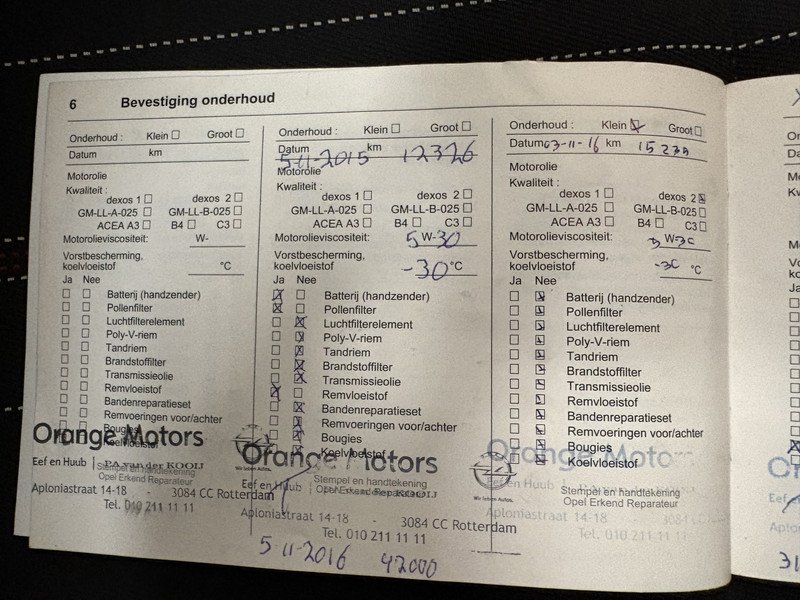 6 Bevestiging onderhoud
Onderhoud : Klein Groot
Datum km
Motorolie
Kwaliteit :
dexos 1 dexos 2
GM-LL-A-025 GM-LL-B-025
ACEA A3 B4 C3
Motorolieviscositeit: W-
Vorstbescherming,
koelvloeistof °C
Ja Nee
Batterij (handzender)
Pollenfilter
Luchtfilterelement
Poly-V-riem
Tandriem
Brandstoffilter
Transmissieolie
Remvloeistof
Bandenreparatieset
Remvoeringen voor/achter
Bougies
Koelvloeistof
Orange Motors
Eef en Huub | P.A van der KOOIJ
Stempel en handtekening
Opel Erkend Reparateur
Aploniastraat 14-18 - 3084 CC Rotterdam
Tel. 010 211 11 11
Onderhoud : Klein Groot
Datum
5-11-2015 12326
Motorolie
Kwaliteit :
dexos 1 dexos 2
GM-LL-A-025 GM-LL-B-025
ACEA A3 B4 C3
Motorolieviscositeit: 5 W-30
Vorstbescherming,
koelvloeistof -30 °C
Ja Nee
Batterij (handzender)
Pollenfilter
Luchtfilterelement
Poly-V-riem
Tandriem
Brandstoffilter
Transmissieolie
Remvloeistof
Bandenreparatieset
Remvoeringen voor/achter
Bougies
Koelvloeistof
Orange Motors
Wir leben Autos.
Eef en Huub
Stempel en handtekening
Opel Erkend Reparateur
KOOIJ
Aploniastraat 14-18 - 3084 CC Rotterdam
Tel. 010 211 11 11
5-11-2016 42000
Onderhoud : Klein Groot
Datum 03-11-16 km 15239
Motorolie
Kwaliteit :
dexos 1 dexos 2
GM-LL-A-025 GM-LL-B-025
ACEA A3 B4 C3
Motorolieviscositeit: W-30
Vorstbescherming,
koelvloeistof -30 °C
Ja Nee
Batterij (handzender)
Pollenfilter
Luchtfilterelement
Poly-V-riem
Tandriem
Brandstoffilter
Transmissieolie
Remvloeistof
Bandenreparatieset
Remvoeringen voor/achter
Bougies
Koelvloeistof
Orange Motors
Wir leben Autos.
Eef en Huub
Stempel en handtekening
Opel Erkend Reparateur
Aploniastraat 14-18 - 3084
Tel. 010 211 11 11